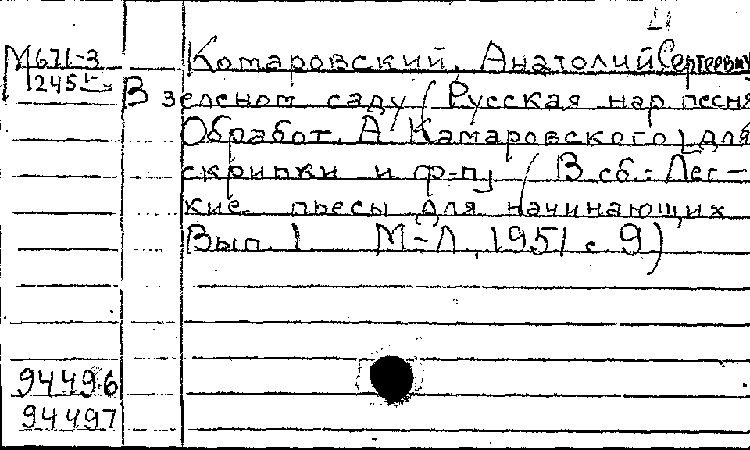 М671-3
1245
Комаровский, Анатолий Сергеевич
В зеленом саду (Русская нар песня
Обработ. А. Камаровского) для
скрипки и ф-п) (В сб.: Лег-
кие пьесы для начинающих
Вып. 1 М-Л, 1951 с 9)
94496
94497